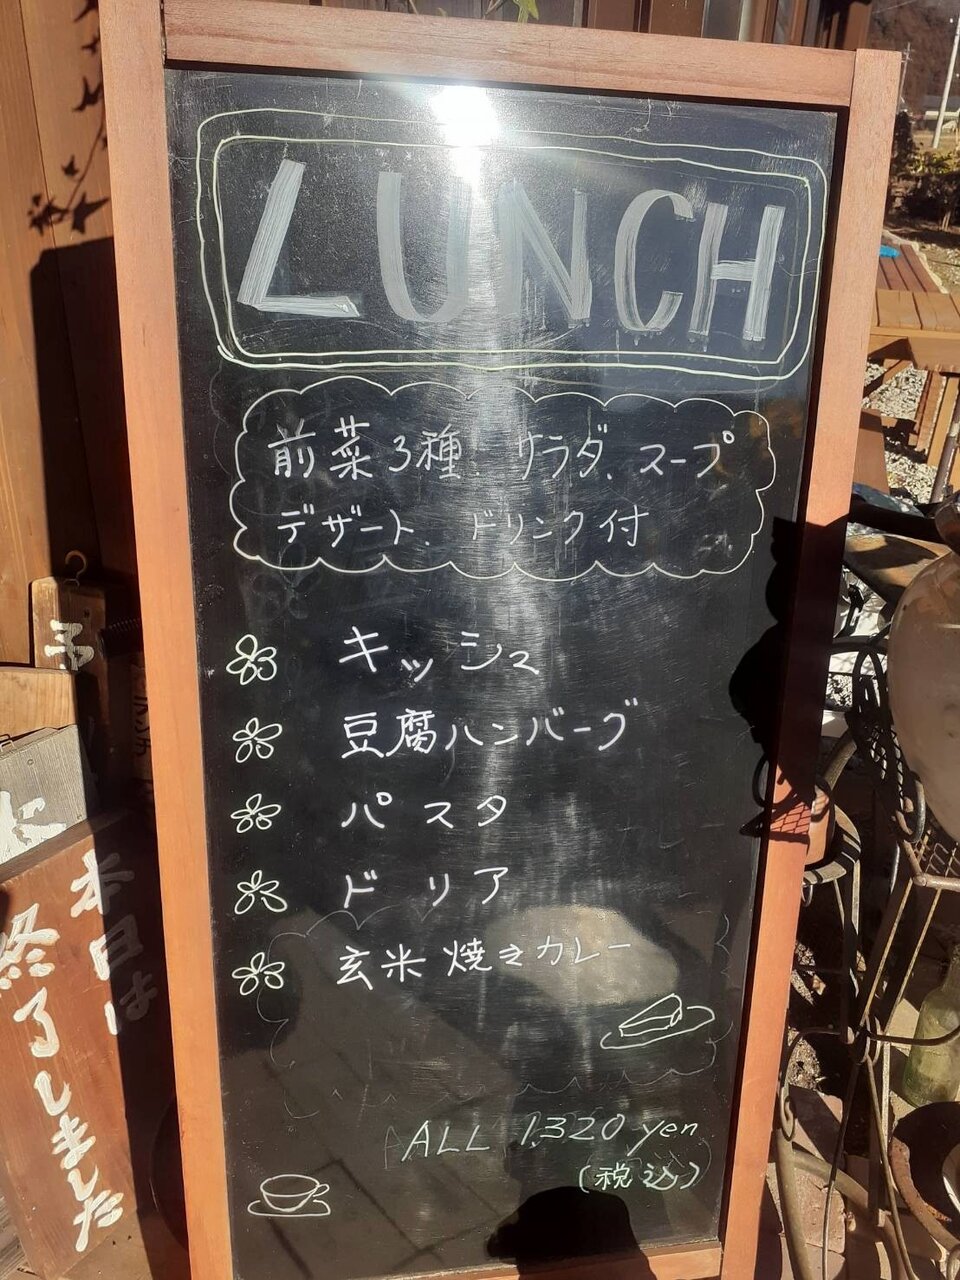 LUNCH
前菜3種、サラダ、スープ
デザート、ドリンク付
キッシュ
豆腐ハンバーグ
パスタ
ドリア
玄米焼きカレー
ALL 1,320 yen
(税込)
本日は
終了しました